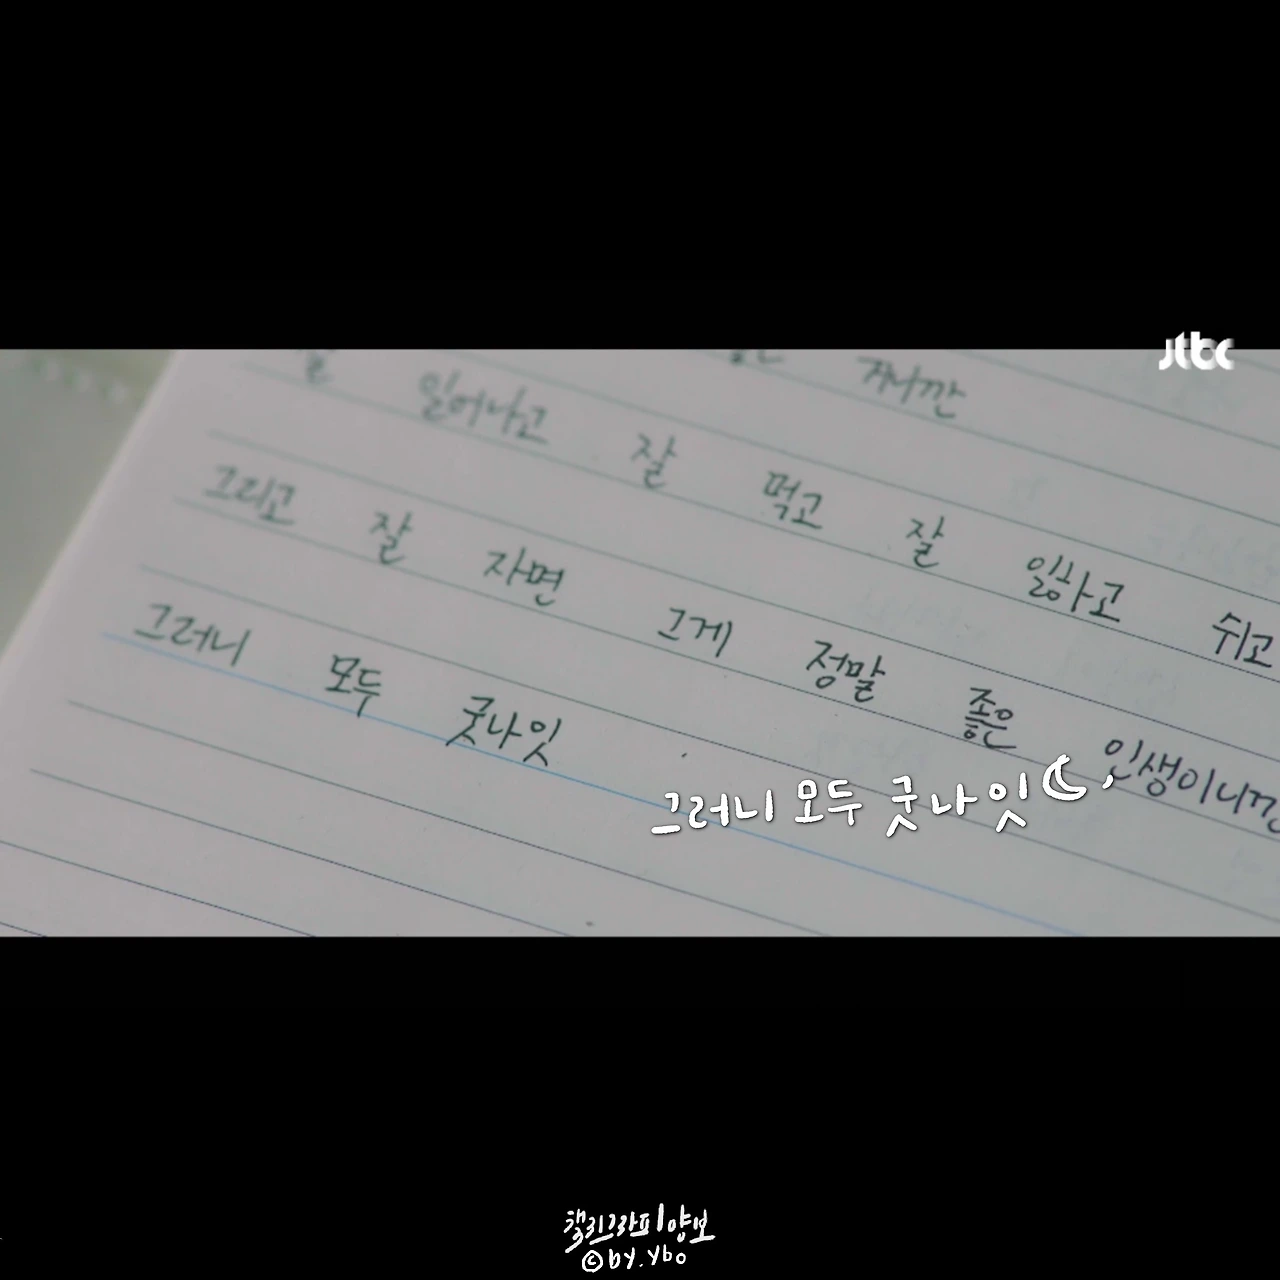 jtbc
잘 일어나고 잘 먹고 잘 일하고 쉬고
그리고 잘 자면 그게 정말 좋은 인생이니까
그러니 모두 굿나잇
그러니 모두 굿나잇
캘리그라피양보
©by.ybo